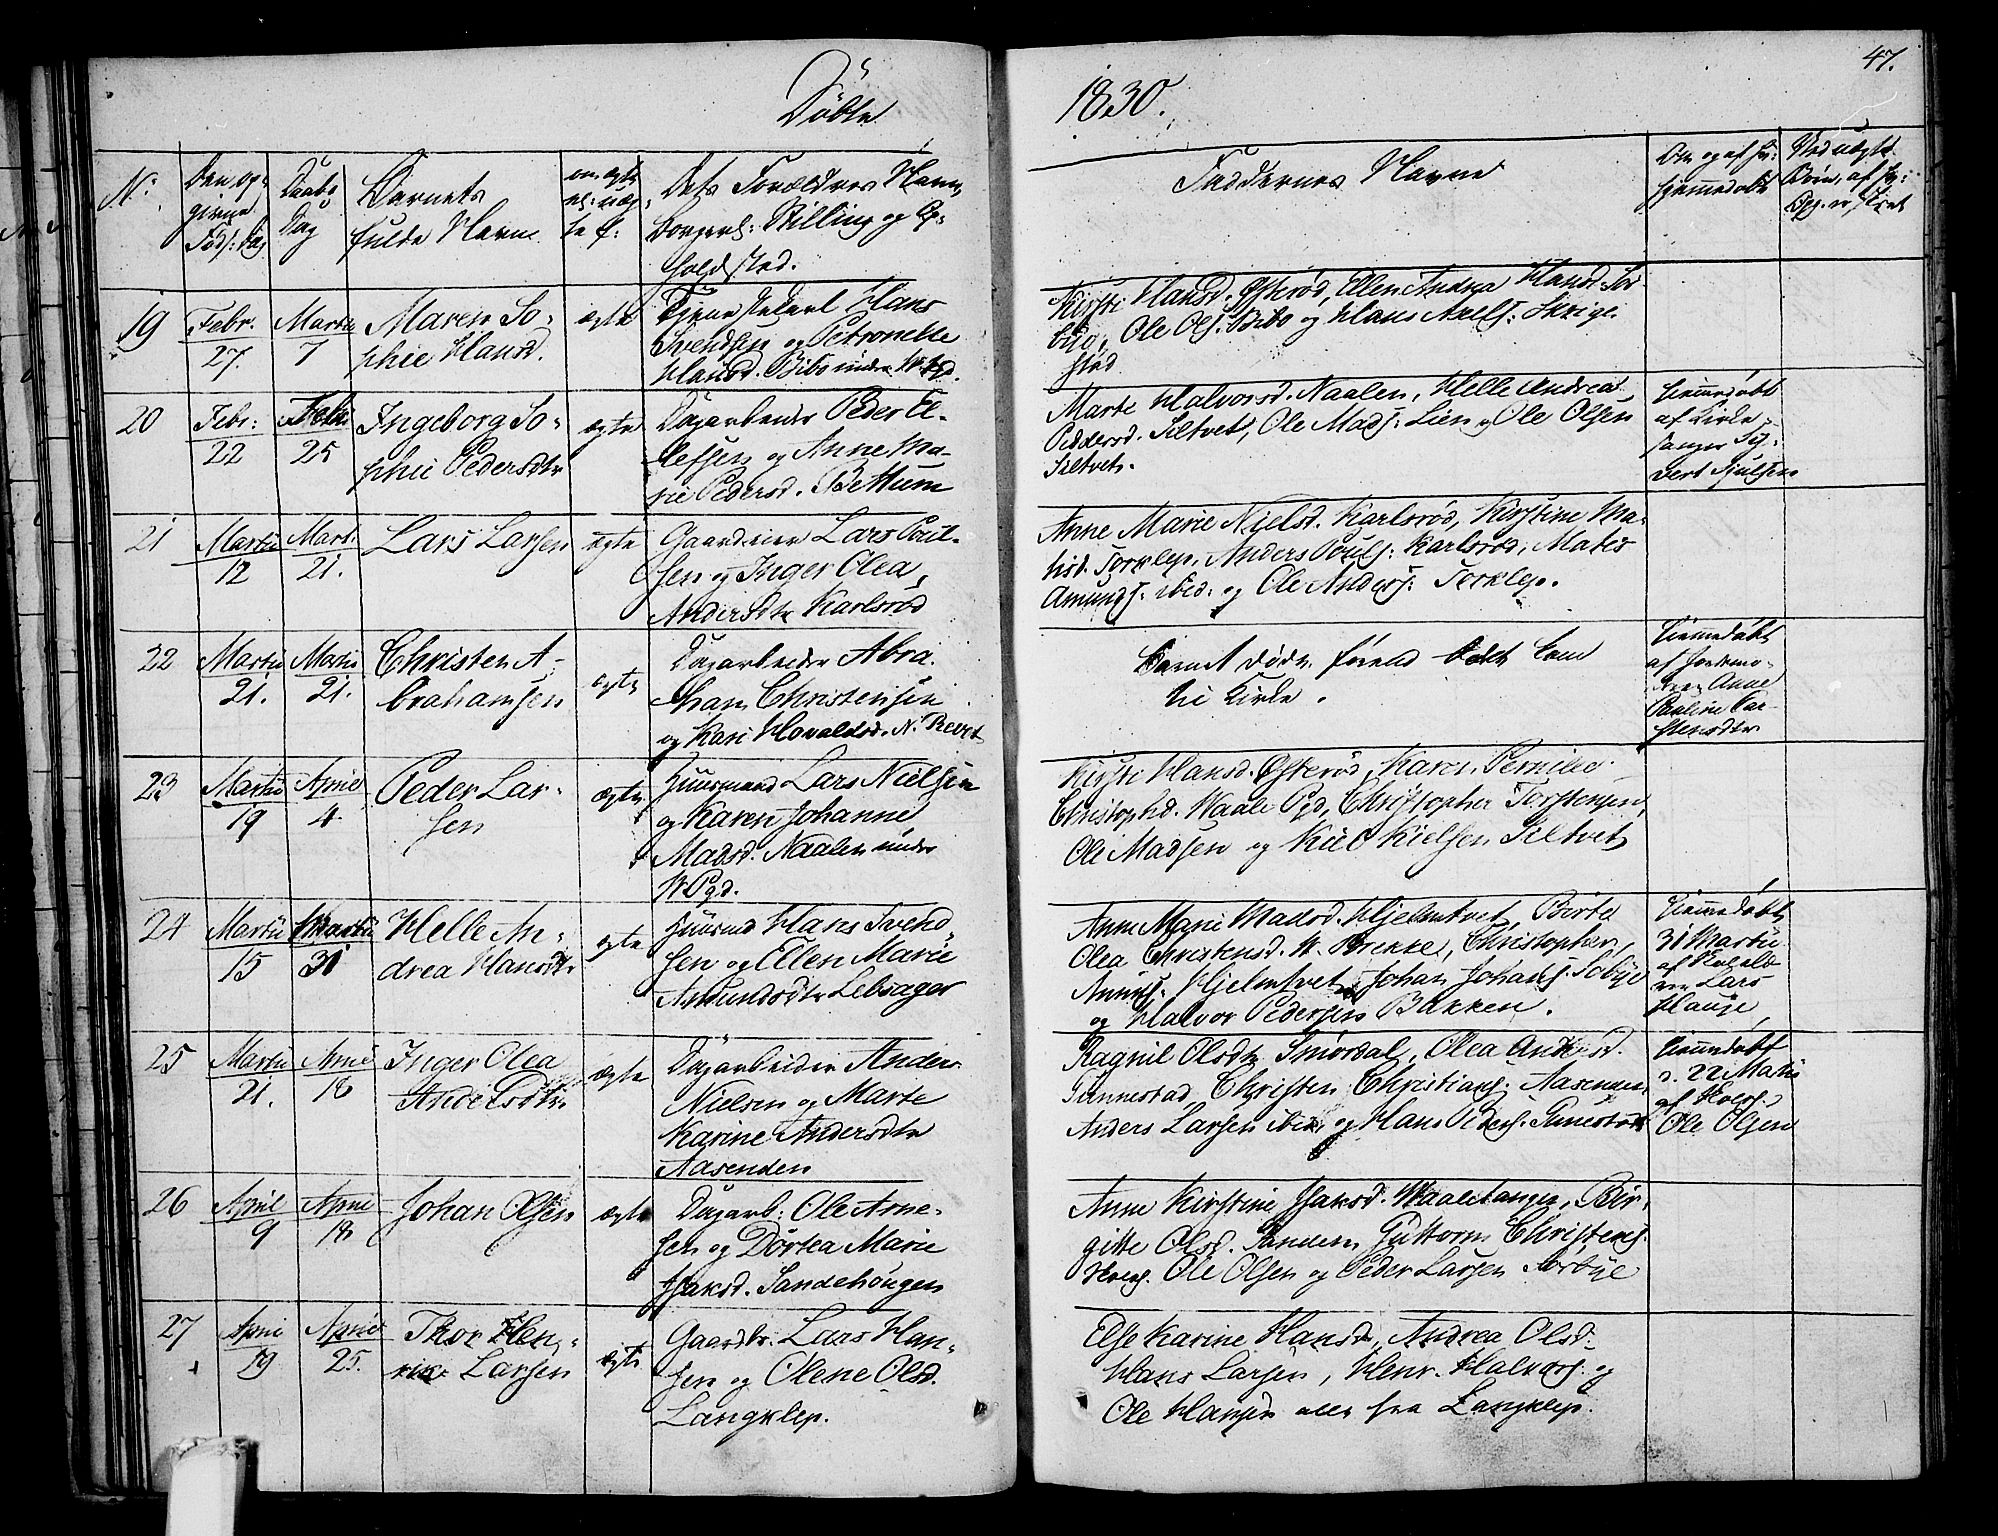 Döbte
1830.
47.
No:
Den op-
givne
Føds: Dag
Daabs
Dag
Barnets
fulde Navne
om ægte
el: uæg-
te f:
Dets Forældres Navn,
Borgerl: Stilling og Op-
holdsted.
Faddernes Navne
Om og af hv:
hjemmedøbt
Ved uægte
Børn, af
19
Febr.
27.
Martii
7
Maren So-
phie Hansd.
ægte
Tjenestekarl Hans
Svendsen og Petronelle
Hansd. Bibo under W. Pgd.
Kirsti Hansd. Østerød, Ellen Andrea Hansd. Sør
bye, Ole Ols: Bibo og Hans Axels: Skrige
stad
20
Febr:
22
Febr
25
Ingeborg So-
phie Pedersdtr
ægte
Dagarbeider Peder El-
lefsen og Anne Ma-
rie Pedersd. Bettum
Marte Halvorsd. Naalen, Helle Andrea
Peddersd. Siltvet, Ole Mads: Lien og Ole Olsen
Siltvet.
Hjemmedøbt
af Kirke-
sanger Si-
vert Sjulsen
21
Martii
12
Mart.
21.
Lars Larsen
ægte
Gaardeier Lars Poul-
sen og Inger Olea
Andersdtr Karlsrød
Anne Marie Nielsd. Karlsrød, Kirstine Ma-
tisd. Torklep, Anders Pouls: Karlsrød, Matis
Amunds: ibid: og Ole Anders: Torklep.
22
Martii
21.
Martii
21.
Christen A-
brahamsen
ægte
Dagarbeider Abra
ham Christensen
og Kari Hovaldsd. N. Revet
Barnet døde førend det kom
til Kirke.
Hjemmedøbt
af Jordemo-
deren Anne
Pauline Car-
stensdtr
23
Martii
19
April
4
Peder Lar-
sen
ægte
Huusmand Lars Nielsen
og Karen Johanne
Madsd. Naalen under
W. Pgd.
Kirsti Hansd. Østerød, Karen Pernille
Christophd. Waale Pgd, Christopher Torstensen,
Ole Madsen og Kiel Kielsen Siltvet
24
Martii
15
Martii
31
Helle An-
drea Hansdtr
ægte
Huusmd Hans Svend-
sen og Ellen Marie
Amundsdtr Lebsager
Anne Marie Madsd. Hjelmtvet, Birte
Olea Christensd. W. Brekke, Christopher
Amunds: Hjelmtvet, Johan Johans: Solbye
og Halvor Pedersen Bakken.
Hjemmedøbt
31 Martii
af
Lars
Hansen
25
Martii
21.
April
18
Inger Olea
Andersdtr.
ægte
Dagarbeider Anders
Nielsen og Marte
Karine Andersdtr
Aasenden
Ragnil Olsdtr Smørdal, Olea Andersd.
Gunnestad, Christen Christians: Aasenden,
Anders Larsen ibid, og Hans Peders: Gunestad
Hjemmedøbt
d. 22 Martii
af
Ole Olsen
26
April
9
April
18
Johan Olsen
ægte
Dagarb: Ole Arne-
sen og Dortea Marie
Isaksd. Sandehougen
Anne Kirstine Isaksd. Waaletangen, Bir-
gitte Olsd. Sanden, Guttorm Christens:
Ole Olsen og Peder Larsen Sørbye
27
April
19
April
25.
Thor Hen-
rik Larsen
ægte
Gaardbr. Lars Han-
sen og Olene Olsd.
Langklep.
Else Karine Hansd., Andrea Olsd:
Hans Larsen, Henr. Halvors: og
Ole Hansen alle fra Langklep.